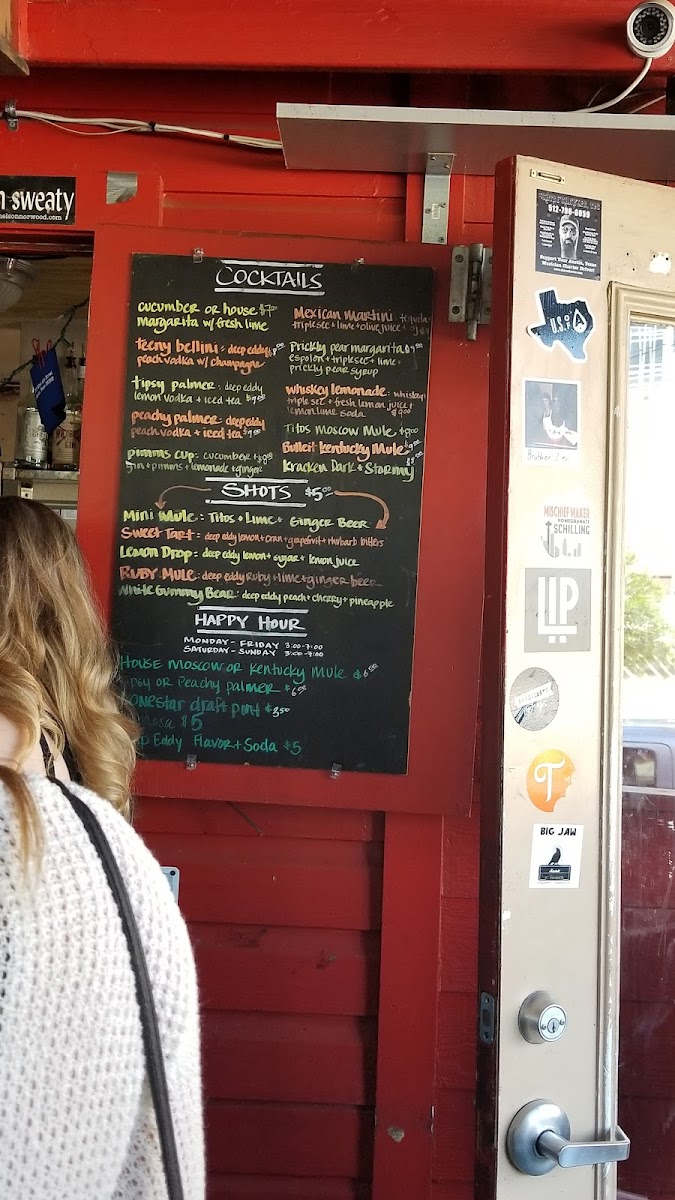 n sweaty
nelsonnorwood.com
COCKTAILS
cucumber or house $7.00
margarita w/ fresh lime
teeny bellini: deep eddy
peach vodka w/ champagne
tipsy palmer: deep eddy
lemon vodka + iced tea
peachy palmer: deep eddy
peach vodka + iced tea
pimms cup: cucumber +
gin + pimms + lemonade + ginger
Mexican Martini: tequila
triple sec + lime + olive juice +
Prickly pear margarita
espolon + triple sec + lime +
prickly pear syrup
whiskey lemonade: whiskey
triple sec + fresh lemon juice +
lemon lime soda $9.00
Titos Moscow Mule
Bulleit Kentucky Mule
Kracken Dark + Stormy
SHOTS $5.00
Mini Mule: Titos + Lime + Ginger Beer
Sweet Tart: deep eddy lemon + cran + grapefruit + rhubarb bitters
Lemon Drop: deep eddy lemon + sugar + lemon juice
Ruby Mule: deep eddy Ruby + lime + ginger beer
White Gummy Bear: deep eddy peach + cherry + pineapple
HAPPY HOUR
MONDAY - FRIDAY 3:00-7:00
SATURDAY - SUNDAY 3:00-7:00
House Moscow or Kentucky Mule $6.00
ipsy or Peachy palmer $6.00
onestar draft pint $3.50
osa $5
ep Eddy Flavor + Soda $5
512-796-6059
MISCHIEF MAKER
POMEGRANATE
SCHILLING
LIP
T
BIG JAW